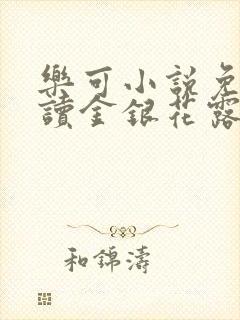 樂可小說免
讀金銀花露
和錦濤